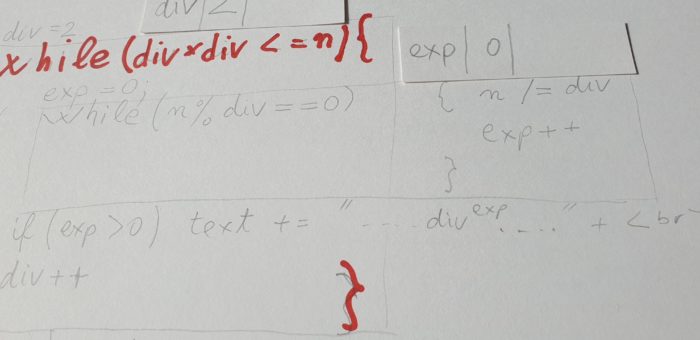 div | 2 |
div = 2
while (div*div <= n) {
exp | 0 |
exp = 0;
while (n % div == 0)
{ n /= div
exp++
}
if (exp > 0) text += " .... div^exp ...." + <br
div++
}